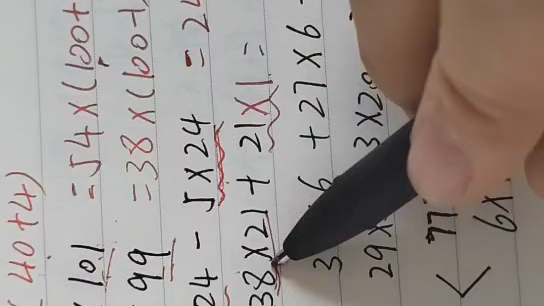 40+4)
101 =54×(100+
99 =38×(100+
24-5×24 =24
38×21+21×1=
3 6+27×6-
29× 3×20
< 77
6×